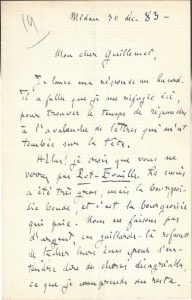 19
Médan 30 déc. 83 -
Mon cher Guillemet,
Je lance ma réponse au hasard.
Il a fallu que je me réfugie ici,
pour trouver le temps de répondre
à l'avalanche de lettres qui m'est
tombée sur la tête.
Hélas! je crois que vous ne
verrez pas Pot-Bouille. Le succès
a été très gros, mais la bourgeoisie
boude, et c'est la bourgeoisie
qui paie. Nous ne faisons pas
d'argent,
de lâcher leurs écus pour s'en-
tendre dire de choses désagréables,
ce que je comprends du reste.